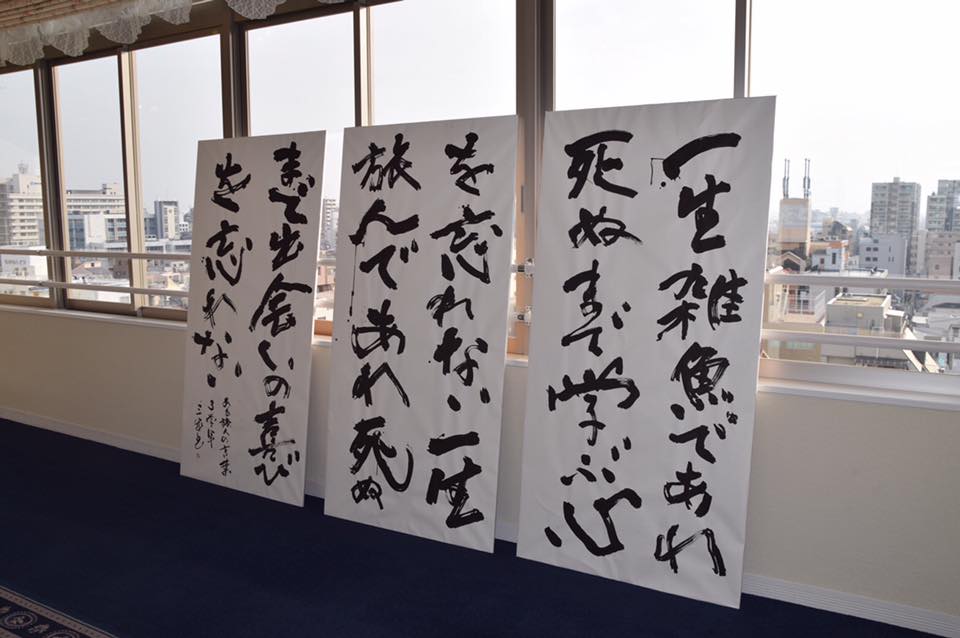 一生雑魚であれ
死ぬまで学ぶ心
を忘れない一生
旅んであれ死ぬ
まで出会いの喜び
を忘れない
ある旅人の言葉